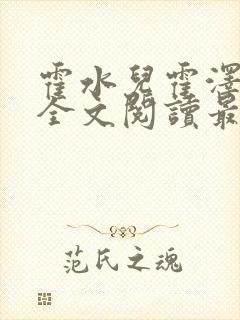 霍水兒霍澤
全文閱讀最
范氏之魂